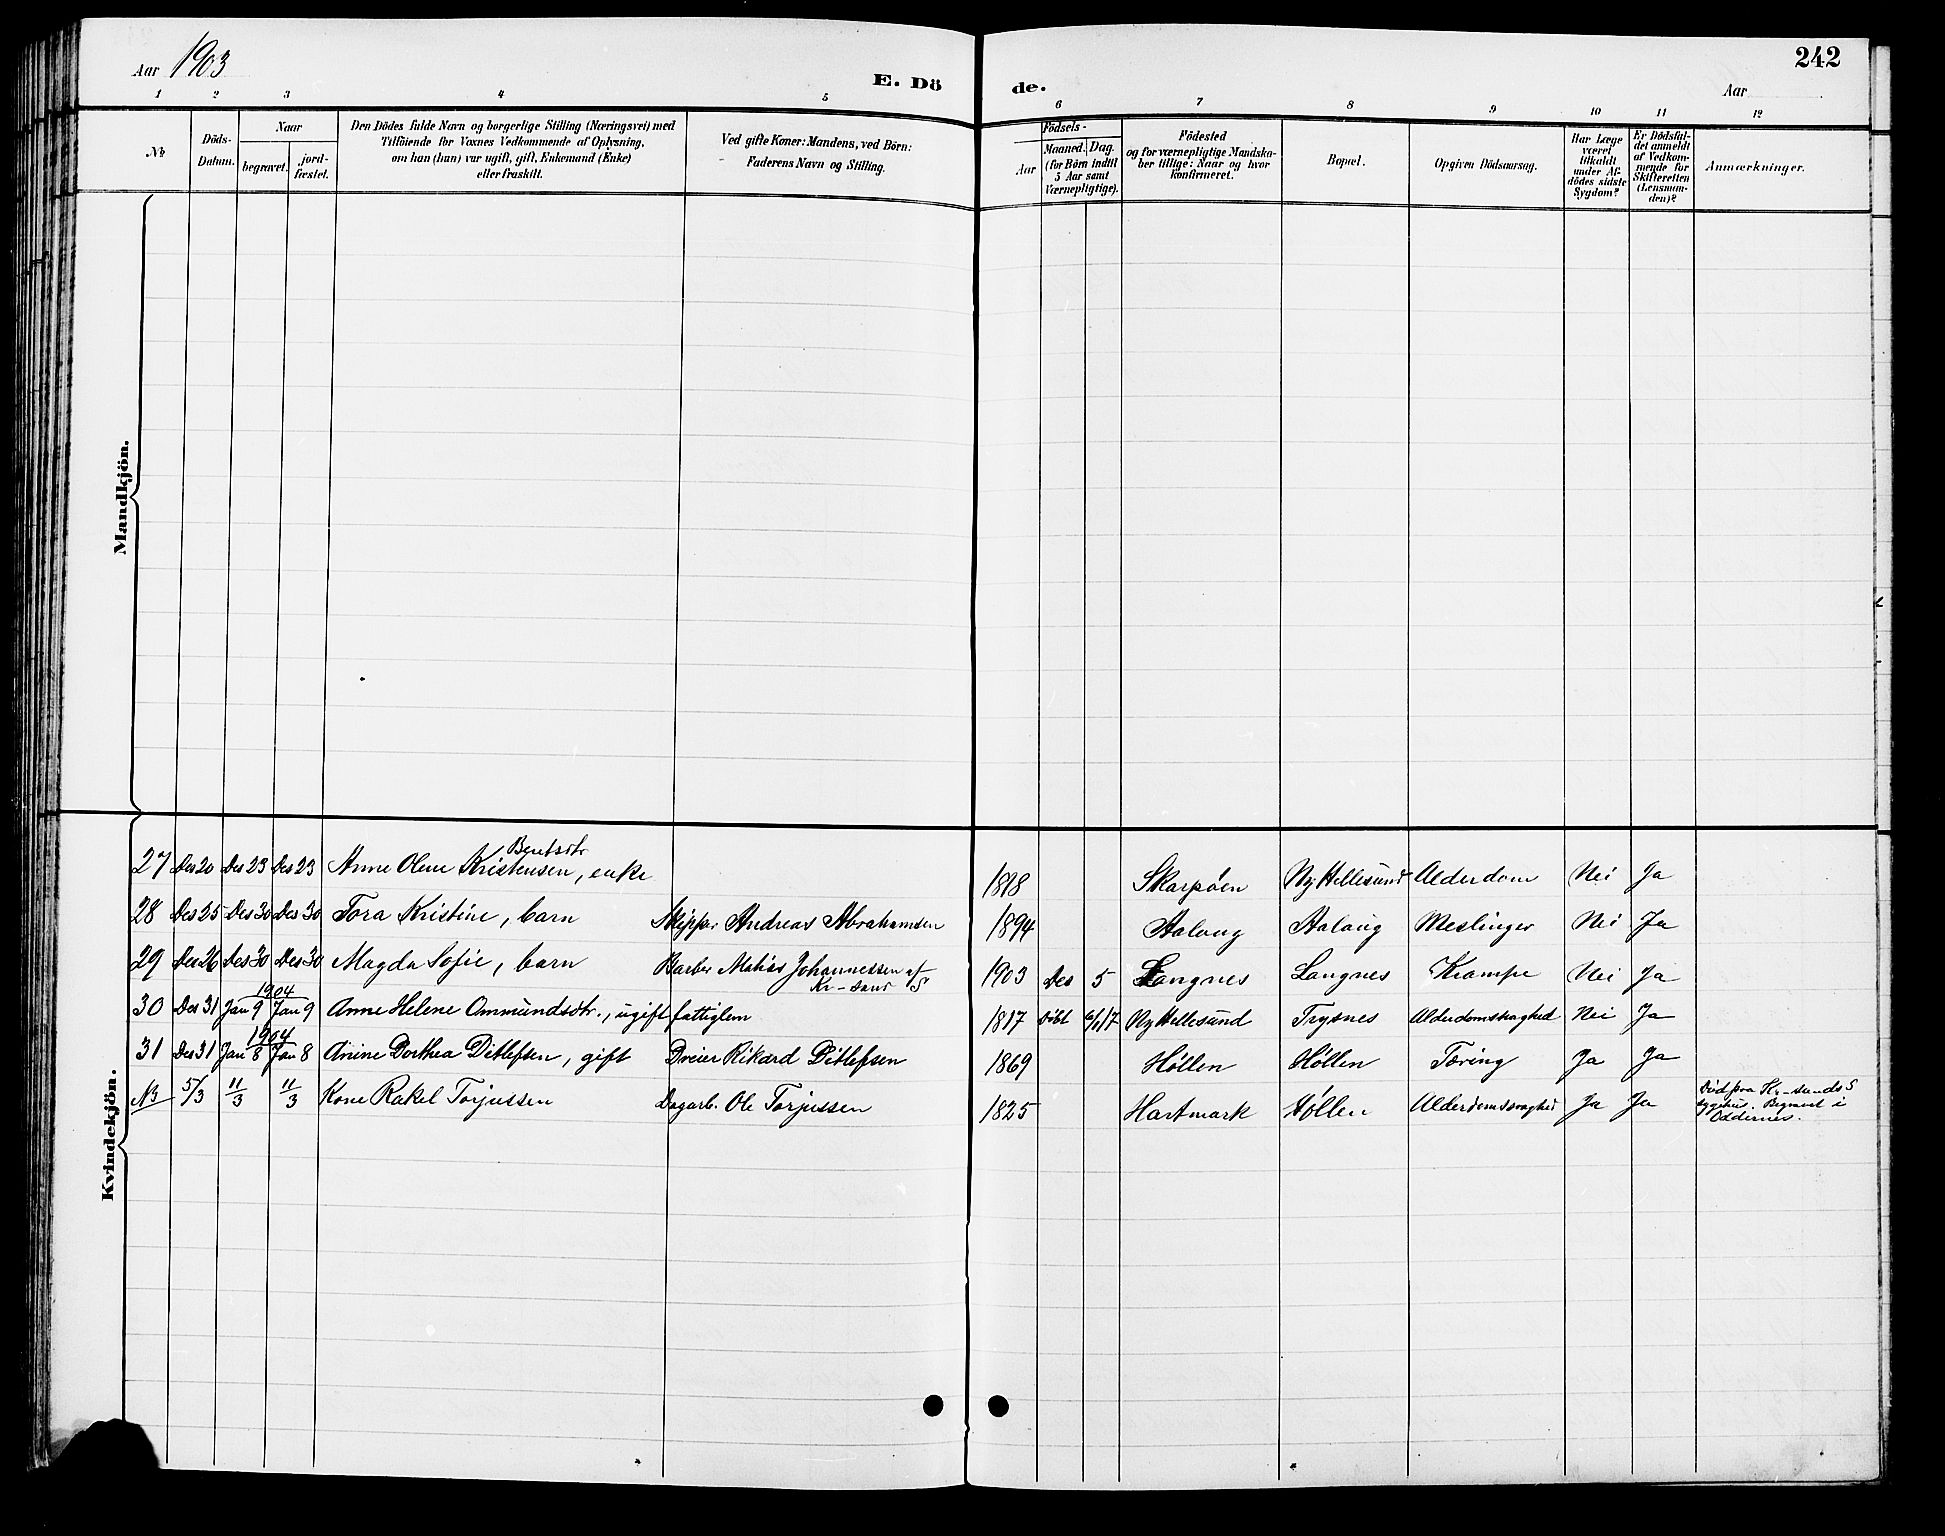 Aar 1903
E. Dö
de.
242
Aar
1 2 3 4 5 6 7 8 9 10 11 12
No
Döds-Datum.
Naar
begravet.
jord-fæstet.
Den Dödes fulde Navn og borgerlige Stilling (Næringsvei) med
Tilföiende for Voxnes Vedkommende af Oplysning,
om han (hun) var ugift, gift, Enkemand (Enke)
eller fraskilt.
Ved gifte Koner: Mandens, ved Börn:
Faderens Navn og Stilling.
Födsels-
Aar
Maaned. Dag.
(for Börn indtil
5 Aar samt
Værnepligtige).
Födested
og for værnepligtige Mandska-
ber tillige: Naar og hvor
konfirmeret.
Bopæl.
Opgiven Dödsaarsag.
Har Læge
været
tilkaldt
under Af-
dödes sidste
Sygdom?
Er Dödsfal-
det anmeldt
af Vedkom-
mende for
Skifteretten
(Lensman-
den)?
Anmærkninger.
Mandkjön.
Kvindekjön.
Bentsdtr
27 Des 20 Des 23 Des 23 Anne Olene Kristensen, enke 1818 Skarpöen Ny Hellesund Alderdom Nei Ja
28 Des 25 Des 30 Des 30 Tora Kristine, barn Skipper Andreas Abrahamsen 1894 Aalaug Aalaug Meslinger Nei Ja
29 Des 26 Des 30 Des 30 Magda Sofie, barn Barber Matias Johannessen af 1903 Des 5 Langnes Langnes Krampe Nei Ja
Kr-sand S
1904
30 Des 31 Jan 9 Jan 9 Anne Helene Ommundsdtr., ugift fattiglem 1817 Döbt 6/1 17 Ny Hellesund Trysnes Alderdomsvaghed Nei Ja
1904
31 Des 31 Jan 8 Jan 8 Anine Dorthea Ditlefsen, gift Dreier Rikard Ditlefsen 1869 Höllen Höllen Tæring Ja Ja
N3 5/3 11/3 11/3 Kone Rakel Torjussen Dagarb. Ole Torjussen 1825 Hartmark Höllen Alderdomsvaghed Ja Ja Död paa Kr-sands S
sygehus. Begravet i
Oddernes.